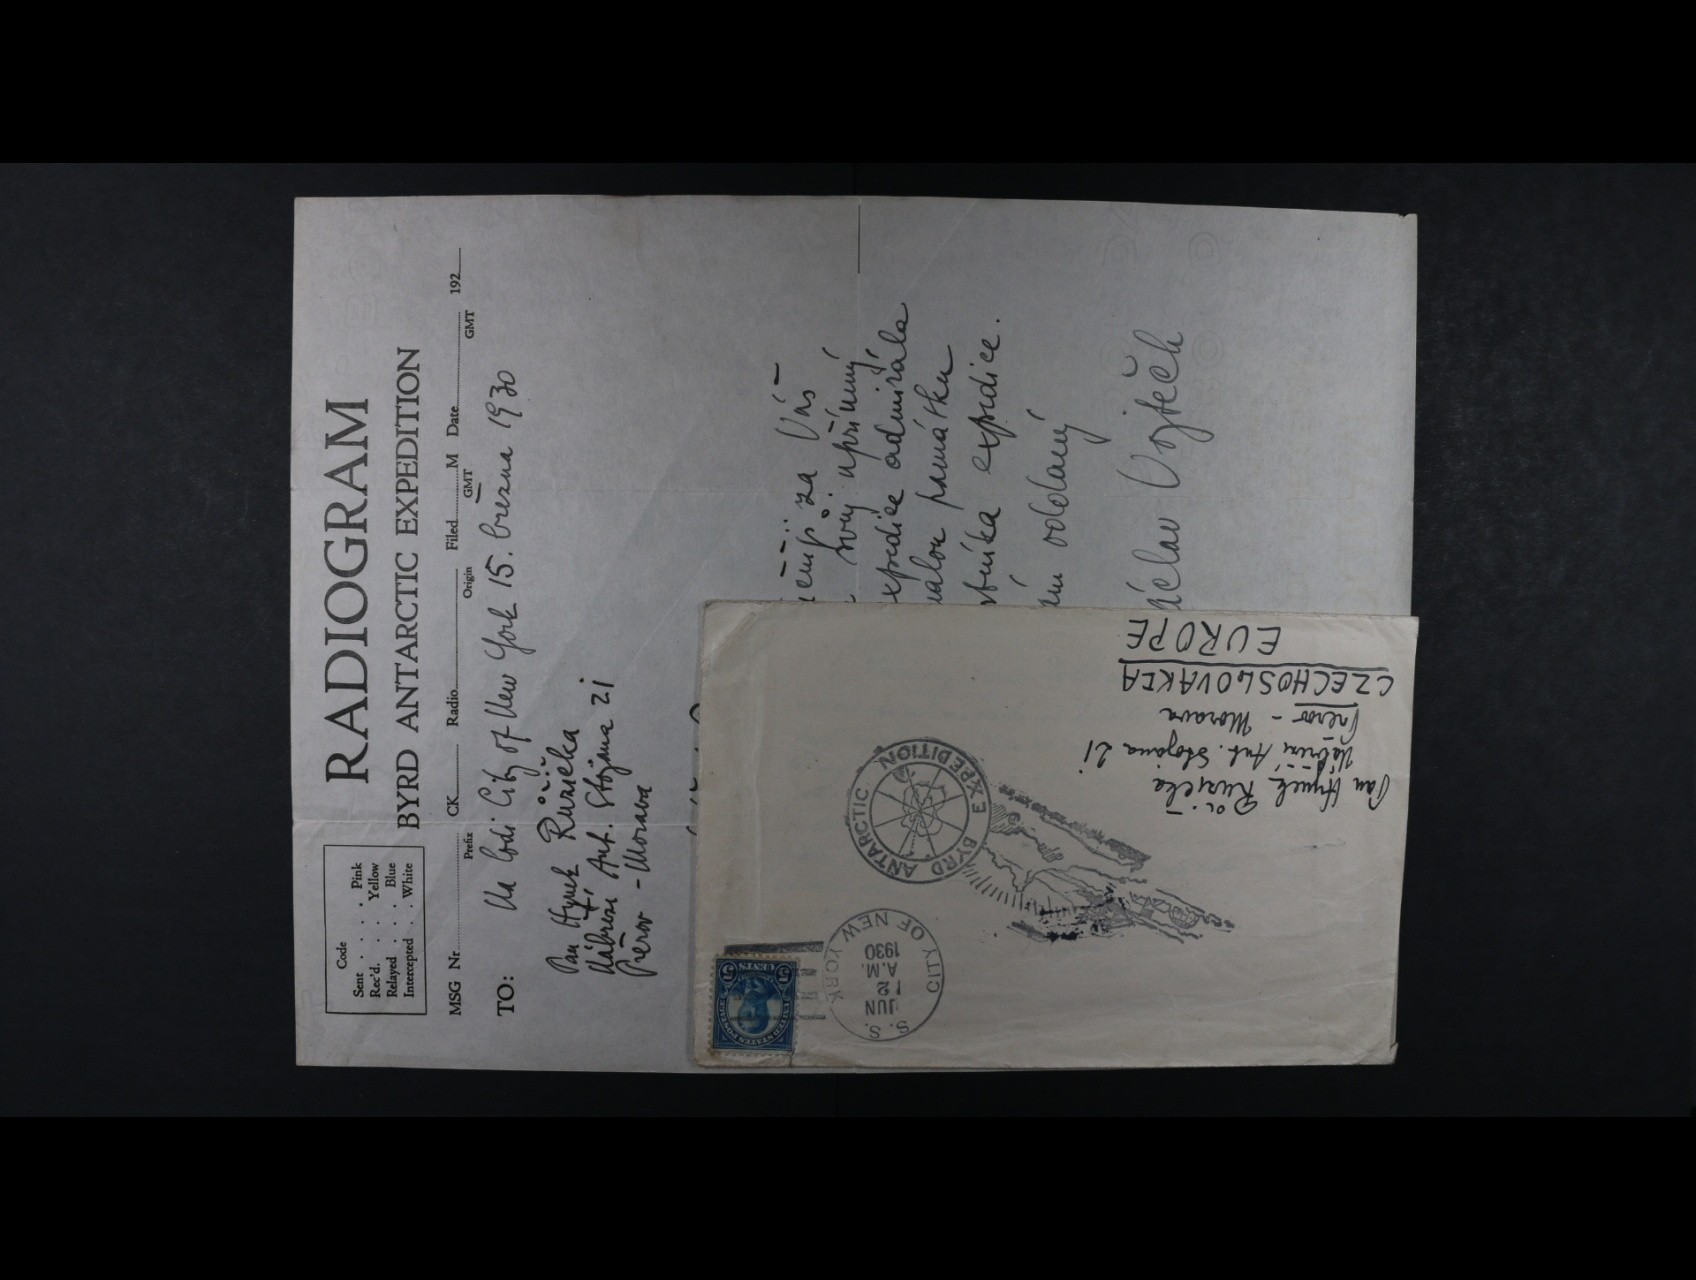 RADIOGRAM
BYRD ANTARCTIC EXPEDITION
Code
Sent . . . . . Pink
Rec'd. . . . Yellow
Relayed . . . Blue
Intercepted . . White
MSG Nr. CK Radio Filed M Date 192
Prefix Origin GMT GMT
Na lodi City of New York 15. března 1930
TO:
Pan Hynek Růžička
Nábřeží Ant. Stojana 21
Přerov - Morava
za Vás
svůj upřímný
expedice admirála
památku
expedice.
oddaný
áclav Vojtěch
UNITED STATES POSTAGE
15 CENTS 15
S.S. CITY OF NEW YORK
JUN
12
A.M.
1930
BYRD ANTARCTIC EXPEDITION
Pan Hynek Růžička
Nábřeží Ant. Stojana 21
Přerov - Morava
CZECHOSLOVAKIA
EUROPE